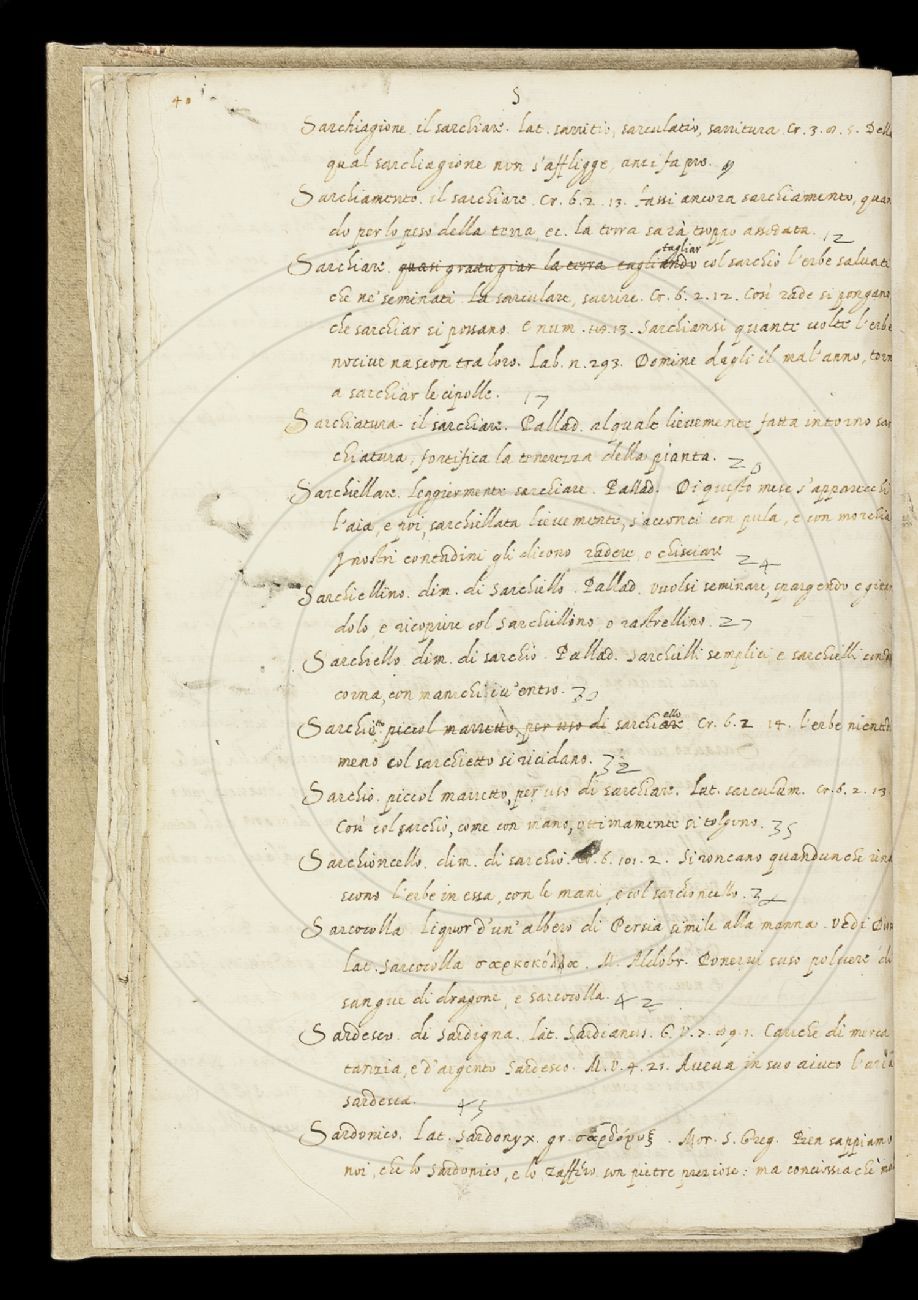 40
S
Sarchiagione. il sarchiare. lat. sarritio, sarculatio, sarritura. Cr. 3. 8. 5. Dell
qual sarchiagione non s'affligge, anzi fa pro. 9
Sarchiamento. il sarchiare. Cr. 6. 2. 13. fassi ancora sarchiamento, quan
do per lo peso della terra, ec. la terra sarà troppo assodata. 12
tagliar
Sarchiare. quasi grattugiar la terra tagliando col sarchio l'erbe salvati
che ne' seminati. La. sarculare, sarrire. Cr. 6. 2. 12. Così rade si pongano,
che sarchiar si possano. E num. 13. Sarchiansi quante volte l'erbe
nocive nascon tra loro. Lab. n. 293. Domine dagli il mal'anno, torn
a sarchiar le cipolle. 17
Sarchiatura. il sarchiare. Pallad. al quale lievemente fatta intorno sar
chiatura, fortifica la tenerezza della pianta. 20
Sarchiellare. leggiermente sarchiare. Pallad. Di questo mese s'apparecchi
l'aia, e poi, sarchiellata lievemente, s'acconci con pula, e con morchia
I nostri contadini gli dicono radere, o chisciare 24
Sarchiellino. dim. di sarchiello. Pallad. vuolsi seminare, spargendo e gitan
dolo, e ricoprire col sarchiellino o rastrellino. 27
Sarchiello. dim. di sarchio. Pallad. sarchielli semplici e sarchielli con du
corna, con manichi iv'entro. 30
ello
Sarchietto piccol marretto, per uso di sarchiare Cr. 6. 2 14. l'erbe niented
meno col sarchietto si ricidano. 32
Sarchio. piccol marretto, per uso di sarchiare. Lat. sarculum. Cr. 6. 2. 13.
Così col sarchio, come con mano, ottimamente si tolgono. 35
Sarchioncello. dim. di sarchio. Cr. 6. 101. 2. Si roncano quandunche vi na
scono l'erbe in essa, con le mani, e col sarchioncello.
Sarcocolla. liquor d'un' albero di Persia simile alla manna. vedi Dios
Lat. sarcocolla σαρκοκόλλα. M. Aldobr. Ponervi suso polvere di
sangue di dragone, e sarcocolla. 42
Sardesco. di Sardigna. lat. Sardianus. G. V. 7. 89. 1. Cariche di merca
tanzia, e d'argento Sardesco. M. V. 4. 21. Aveva in suo aiuto l'arm
sardesca. 45
Sardonico. Lat. sardonyx. gr. σαρδόνυξ. Mor. S. Greg. Ben sappiamo
noi, che lo sardonico, e lo zaffiro son pietre preziose: ma conciossia che n